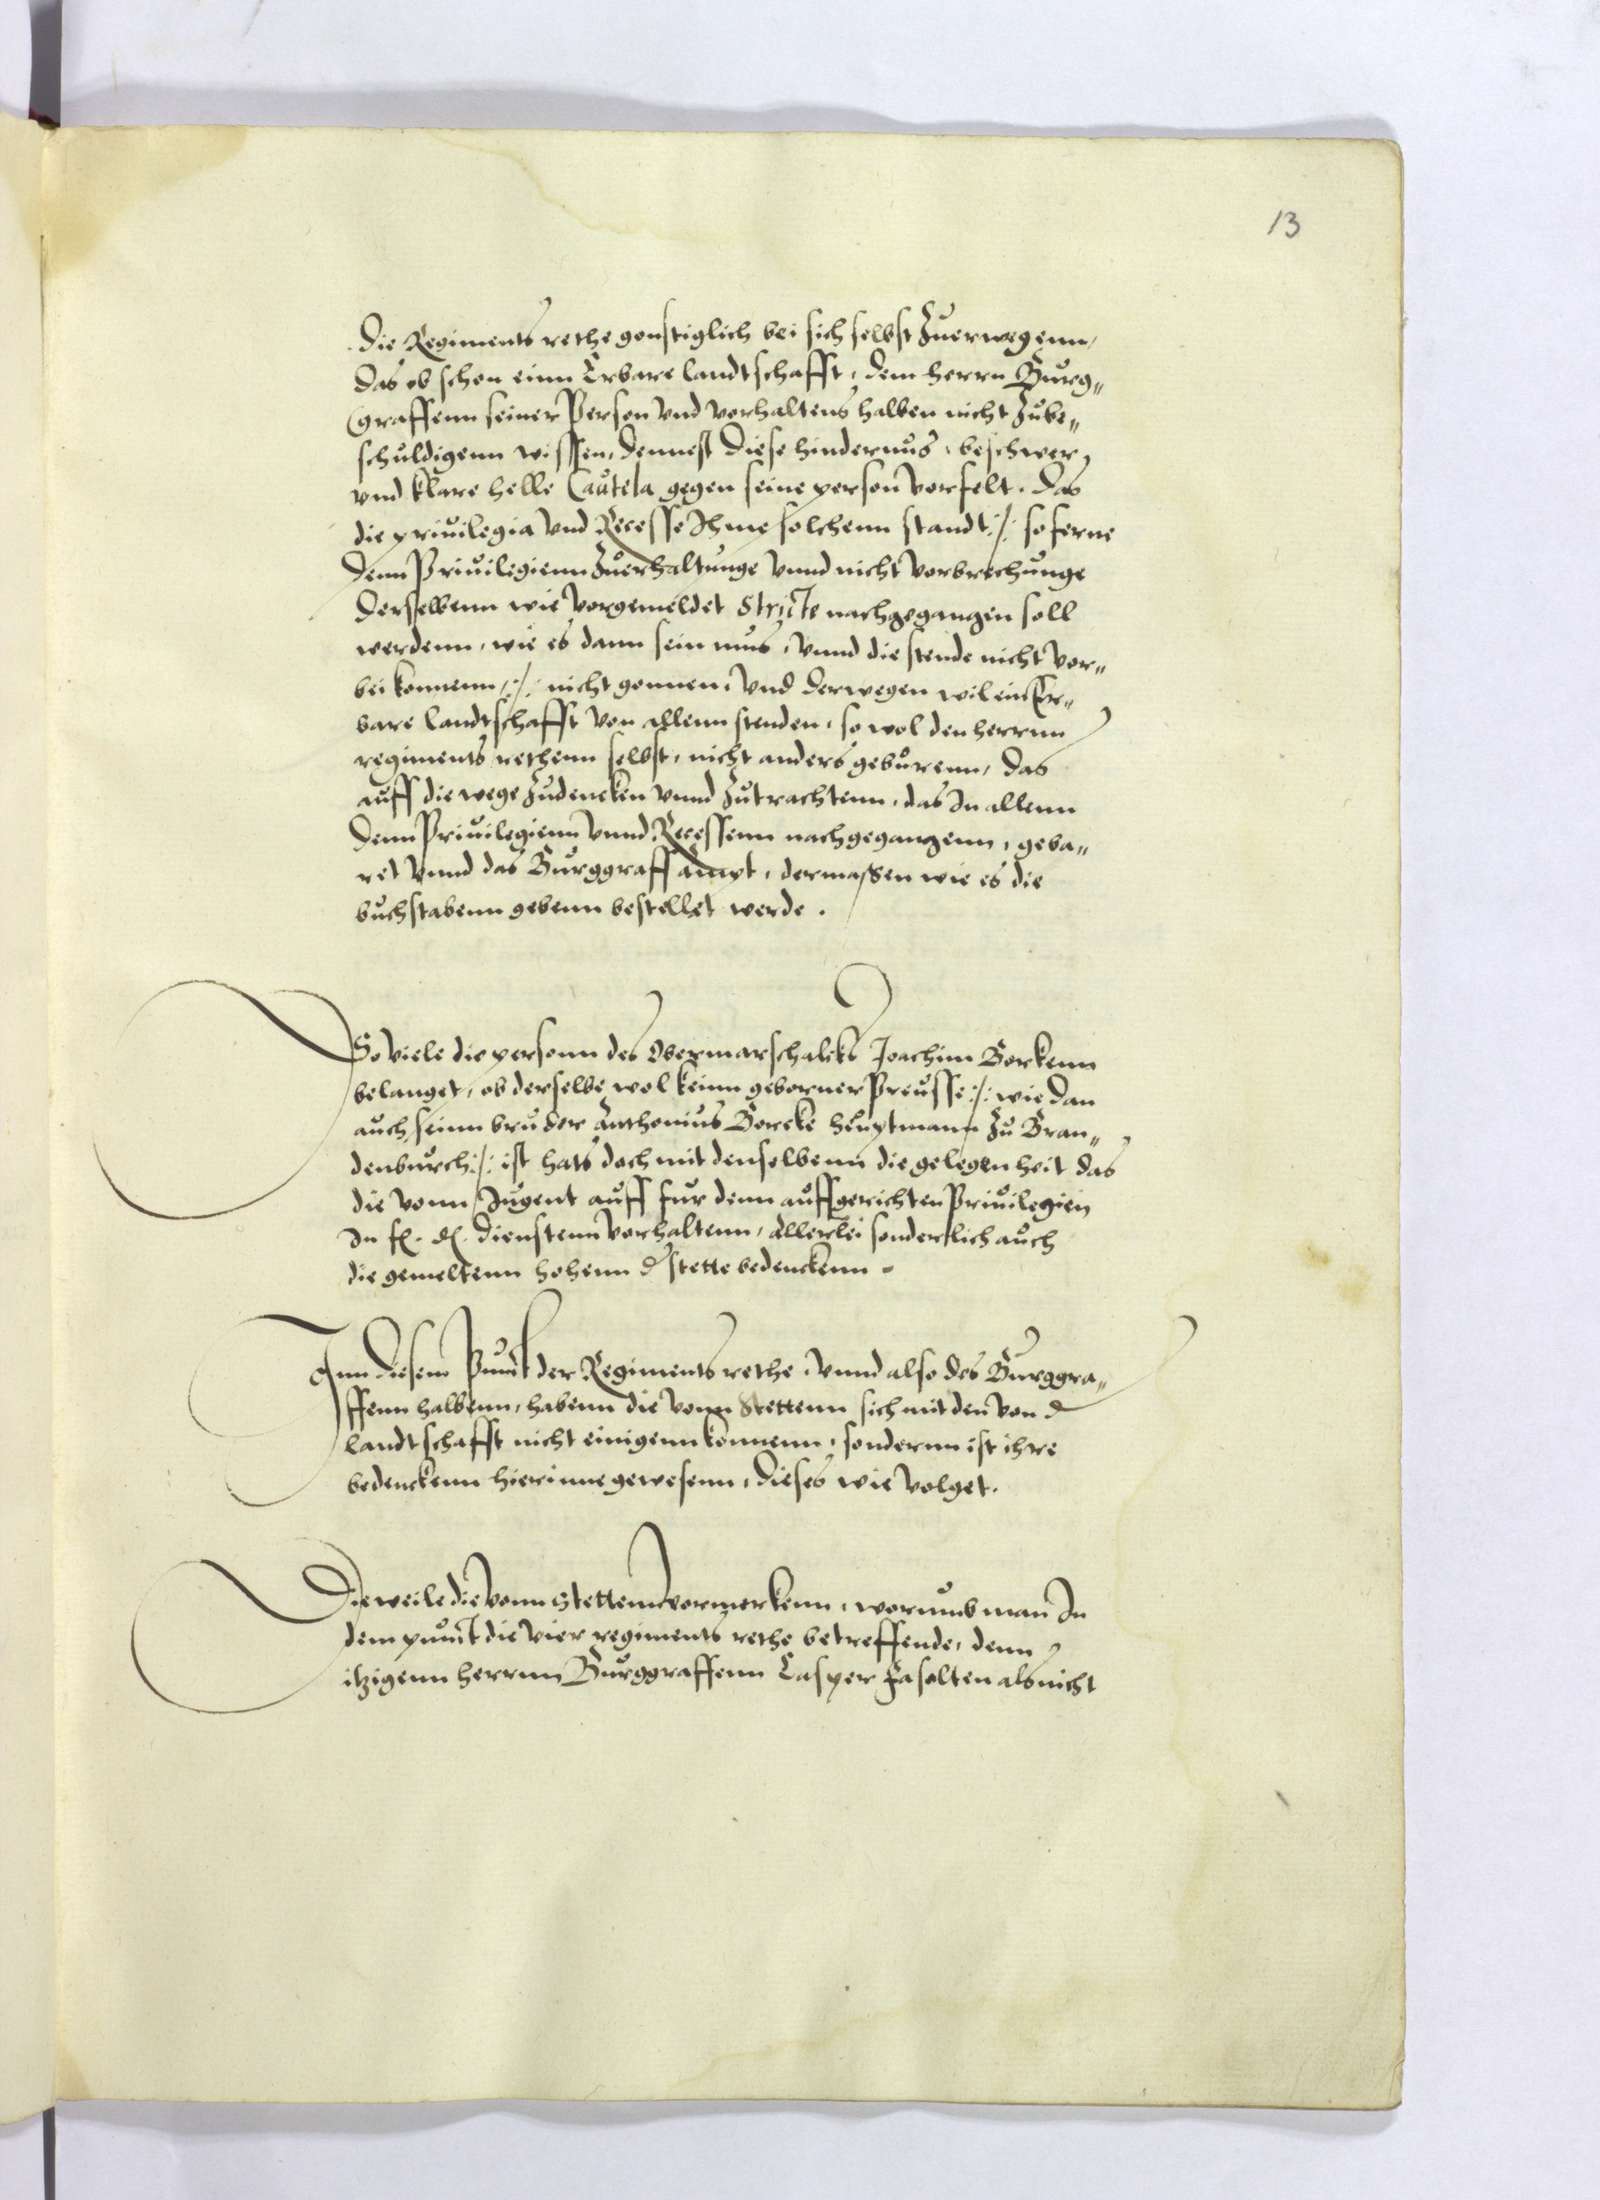 13
die Regiments rethe gonstiglich bei sich selbst Zuerwegenn,
das ob schon einn Erbare landtschafft, dem herrn Burg„
Graffenn seiner Person vnd vorhaltens halben nicht Zube„
schuldigenn wissen, dennest diese hindernus, beschwer,
vnd klare helle Cautela gegen seine person vorfelt. das
die priuilegia vnd Recesse Ihme solchenn standt :/: so ferne
denn Priuilegienn Zuerhaltunge vnnd nicht vorbrechunge
derselbenn wie vorgemeldet Stricte nachgegangen soll
werdenn, wie es dann sein mus, vnnd die stende nicht vor„
bei konnenn :/: nicht gonnen, vnd derwegen wil ein Er„
bare landtschafft von allenn stenden, so wol den herrnn
regiments rethenn selbst, nicht anders geburenn, das
auff die wege Zudencken vnnd Zutrachtenn, das In allenn
denn Priuilegienn vnnd Recessenn nachgegangenn, geba„
ret vnnd das Burggraff ampt, dermassen wie es die
buchstabenn gebenn bestellet werde.
So viele die personn des Obermarschalcks Joachim Borkenn
belanget, ob derselbe wol keinn geborner Preusse :/: wie dan
auch seinn bruder Anthonius Borcke heuptmann Zu Bran„
denburch :/: ist hats doch mit denselbenn die gelegenheit das
die vonn Jugent auff fur denn auffgerichten Priuilegien
In f. d. dienstenn vorhaltenn, Allerlei sonderlich auch
die gemeltenn hohenn d stette bedenckenn
Inn diesem Punct der Regiments rethe, vnnd also des Burggra„
ffenn halbenn, habenn die vonn Stettenn sich mit den von d
landtschafft nicht einigenn konnenn, sondernn ist ihre
bedenckenn hierinne gewesenn, dieses wie volget.
Dieweile die vonn Stettenn vormerkenn, worumb man In
dem punct die vier regiments rethe betreffende, denn
itzigenn herrnn Burggraffenn Casper Fasolten als nicht